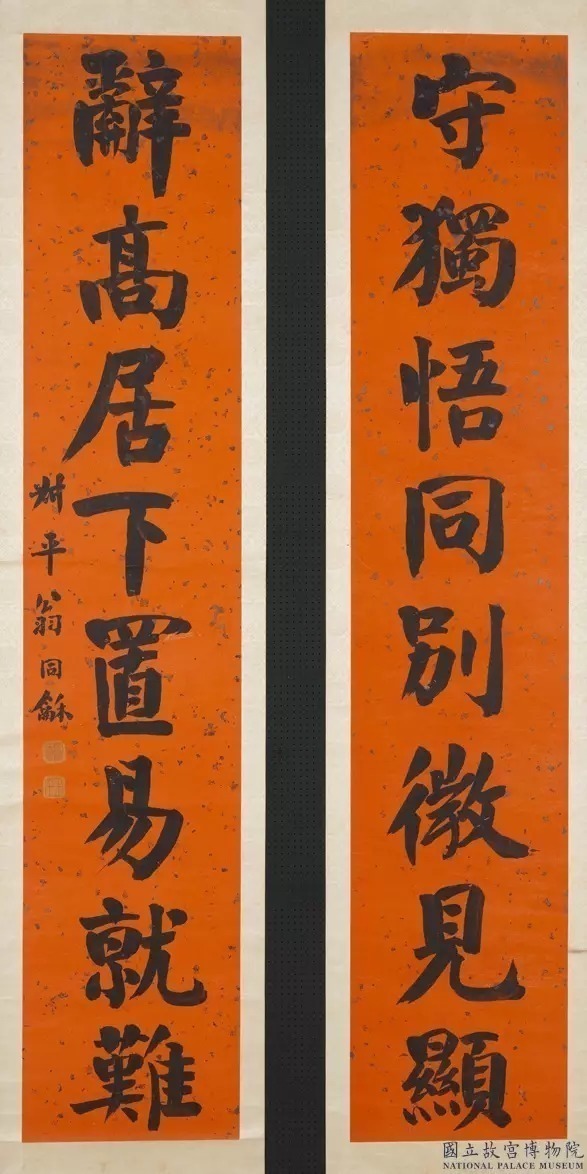 守獨悟同別微見顯
辭髙居下置易就難
叔平翁同龢
國立故宮博物院
NATIONAL PALACE MUSEUM